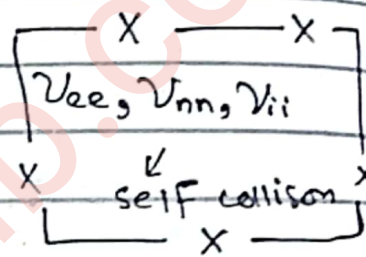 x x
νee, νnn, νii
x ↙ x
self collison
x